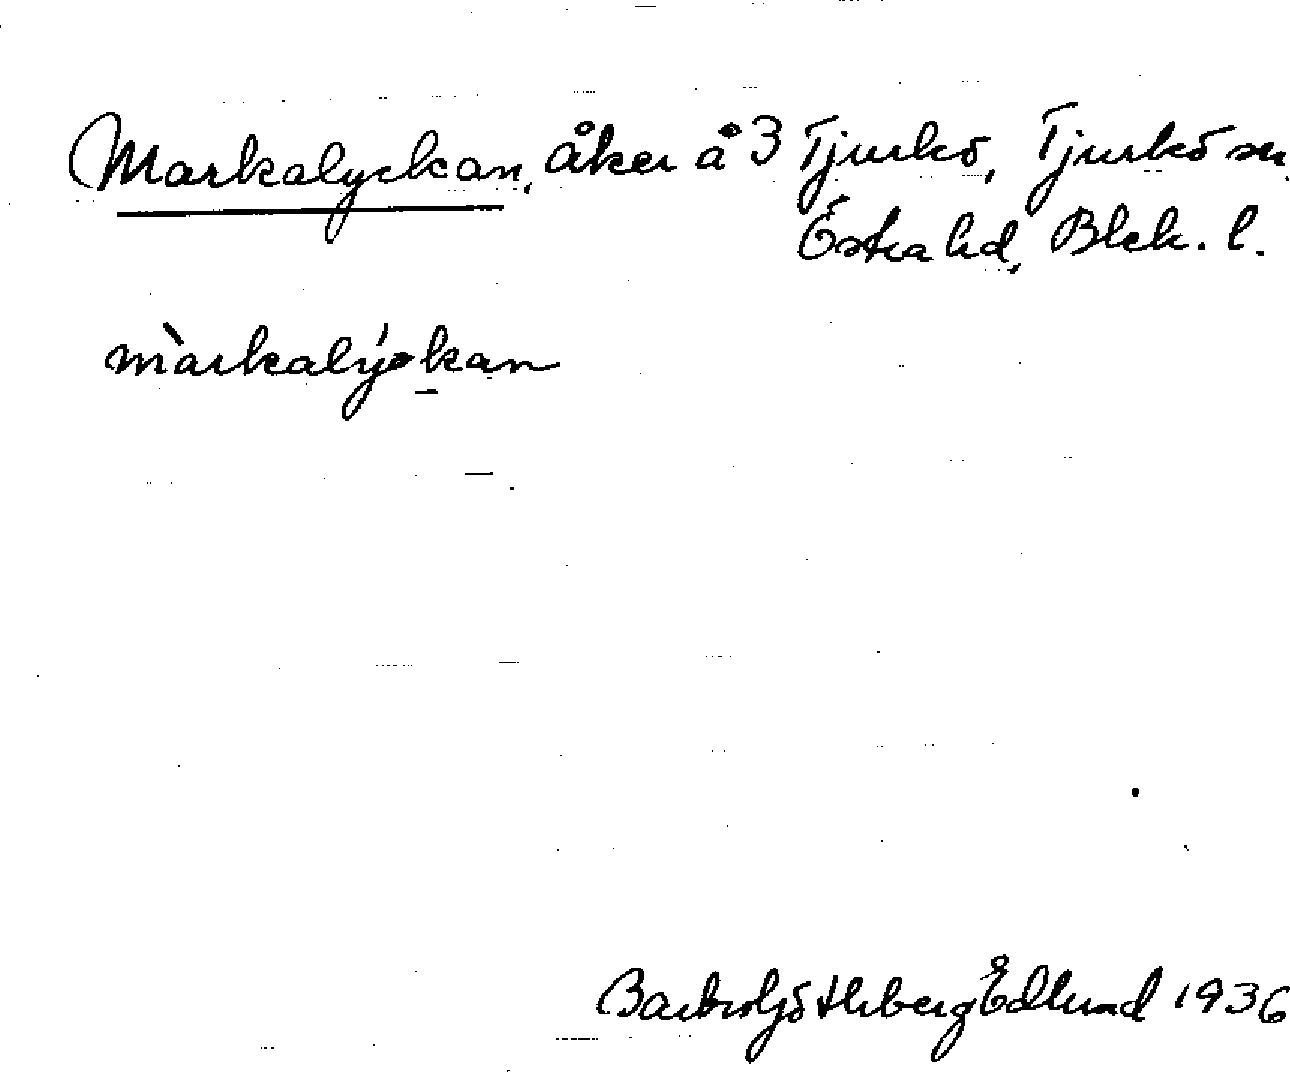 Markalyckan, åker å 3 Tjurkö, Tjurkö sn
Östra hd, Blek. l.
màrkalýckan
Edlund 1936